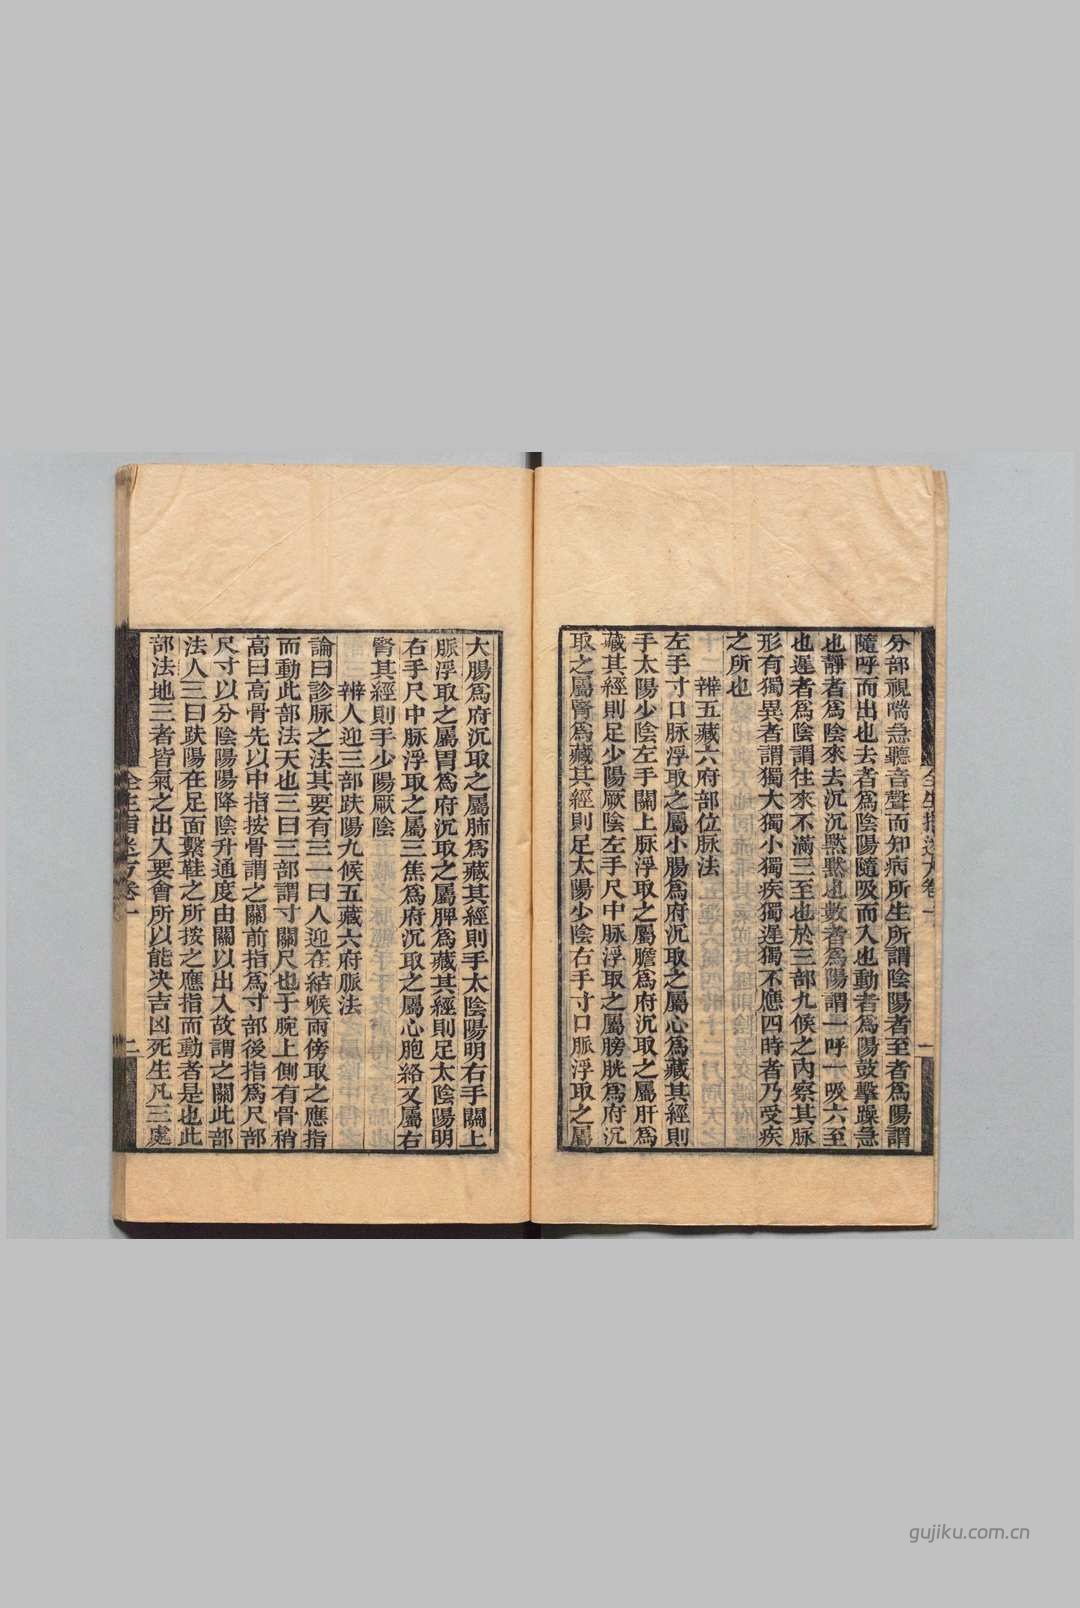 分部視喘急聽音聲而知病所生所謂陰陽者至者爲陽謂
隨呼而出也去者爲陰陽隨吸而入也動者爲陽鼓擊躁急
也靜者爲陰來去沉沉默默也數者爲陽謂一呼一吸六至
也遲者爲陰謂往來不滿三至也於三部九候之內察其脉
形有獨異者謂獨大獨小獨疾獨遲獨不應四時者乃受疾
之所也
辨五藏六府部位脉法
左手寸口脉浮取之屬小腸爲府沉取之屬心爲藏其經則
手太陽少陰左手關上脉浮取之屬膽爲府沉取之屬肝爲
藏其經則足少陽厥陰左手尺中脉浮取之屬膀胱爲府沉
取之屬腎爲藏其經則足太陽少陰右手寸口脈浮取之屬
全生指迷方卷一
一
大腸爲府沉取之屬肺爲藏其經則手太陰陽明右手關上
脈浮取之屬胃爲府沉取之屬脾爲藏其經則足太陰陽明
右手尺中脉浮取之屬三焦爲府沉取之屬心胞絡又屬右
腎其經則手少陽厥陰
辨人迎三部趺陽九候五藏六府脈法
論曰診脈之法其要有三一曰人迎在結喉兩傍取之應指
而動此部法天也二曰三部謂寸關尺也于腕上側有骨稍
高曰高骨先以中指按骨謂之關前指爲寸部後指爲尺部
尺寸以分陰陽陽降陰升通度由關以出入故謂之關此部
法人三曰趺陽在足面繫鞋之所按之應指而動者是也此
部法地三者皆氣之出入要會所以能决吉凶死生凡三處
全生指迷方卷一
二
gujiku.com.cn